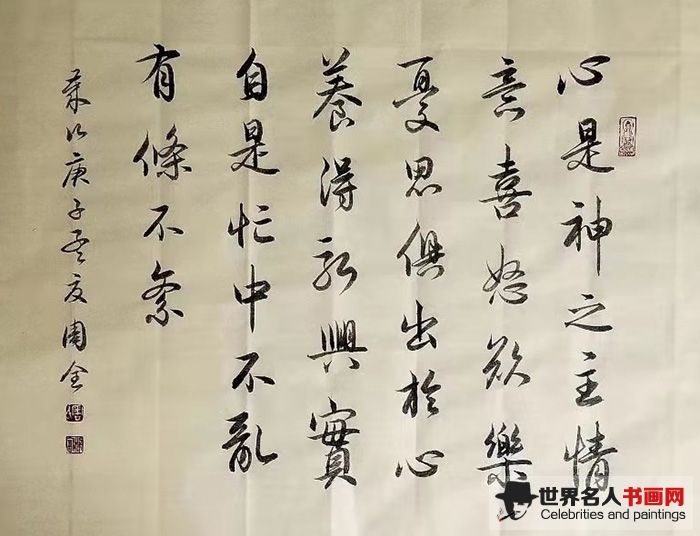 心是神之主情
意喜怒欢樂
憂思俱出於心
養得永興實
自是忙中不亂
有條不紊
庚子孟夏國全
世界名人书画网
Celebrities and paintings